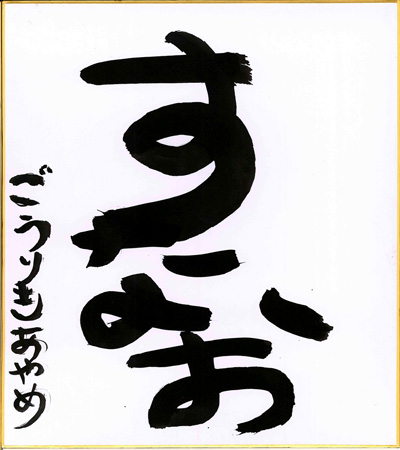 すなお
ごうりきあやめ